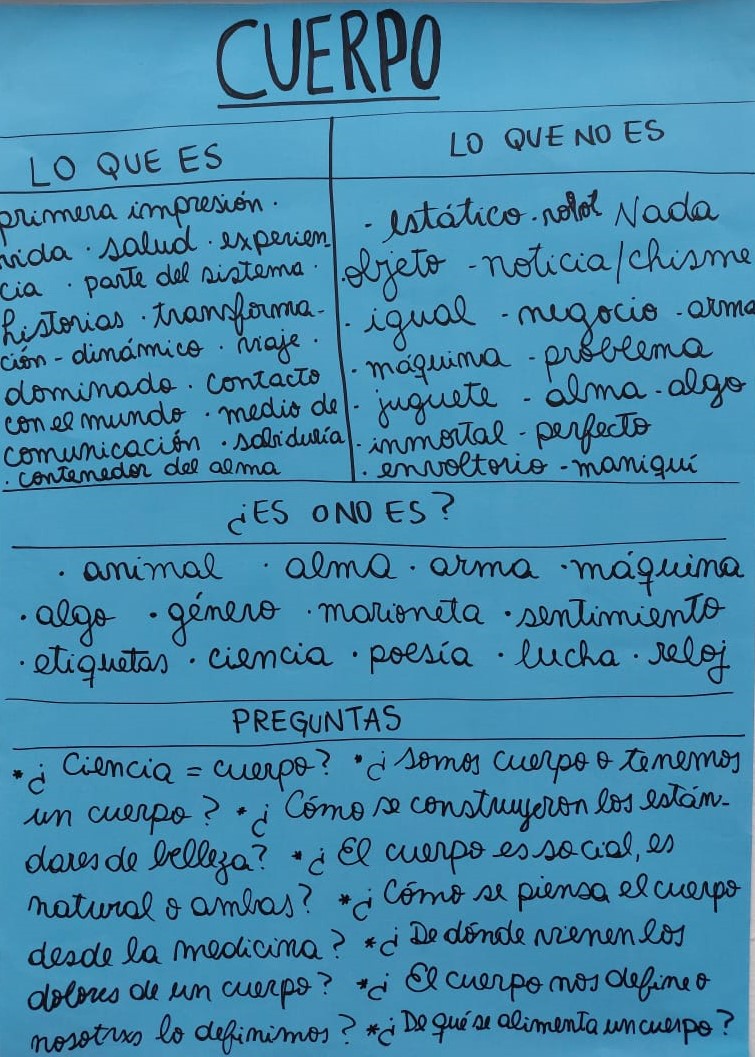 CUERPO
LO QUE ES
primera impresión.
vida · salud · experien
cia · parte del sistema ·
historias · transforma-
ción - dinámico · viaje ·
dominado · contacto
con el mundo · medio de
comunicación · sabiduría
· contenedor del alma
LO QUE NO ES
- estático · robot Nada
· objeto - noticia/chisme
· igual - negocio - arma
· máquima - problema
· juguete - alma - algo
· inmortal - perfecto
· envoltorio - maniquí
¿ES O NO ES?
· animal · alma · arma · máquima
· algo · género · marioneta · sentimiento
· etiquetas · ciencia · poesía · lucha · reloj
PREGUNTAS
*¿ Ciencia = cuerpo? *¿ Somos cuerpo o tenemos
un cuerpo? *¿ Cómo se construyeron los están-
dares de belleza? *¿ El cuerpo es social, es
natural o ambas? *¿ Cómo se piensa el cuerpo
desde la medicina? *¿ De dónde vienen los
dolores de un cuerpo? *¿ El cuerpo nos define o
nosotrxs lo definimos? *¿ De qué se alimenta un cuerpo?